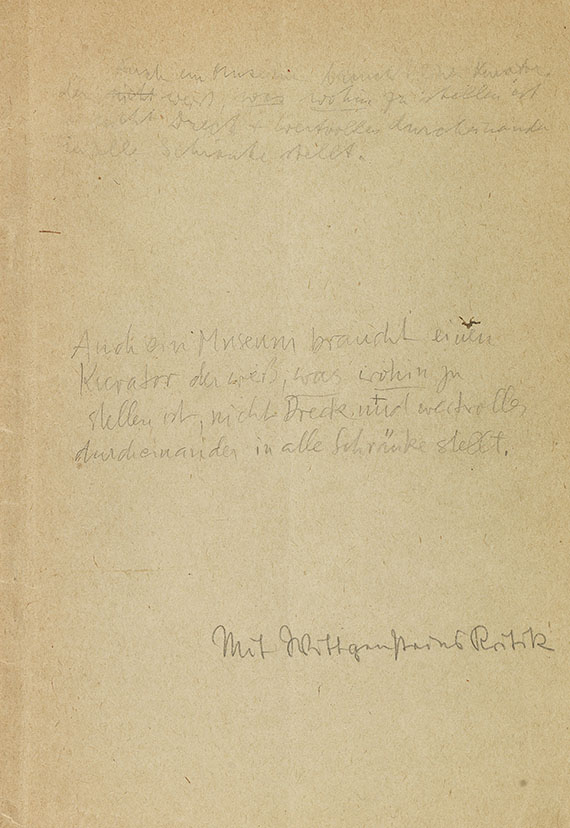 Auch ein Museum braucht Kurator
der weiß, was wohin zu stellen ist
nicht Dreck + wertvolles durcheinander
in alle Schränke stellt.
Auch ein Museum braucht einen
Kurator der weiß, was wohin zu
stellen ist, nicht Dreck und wertvolles
durcheinander in alle Schränke stellt.
Mit Wittgensteins Kritik